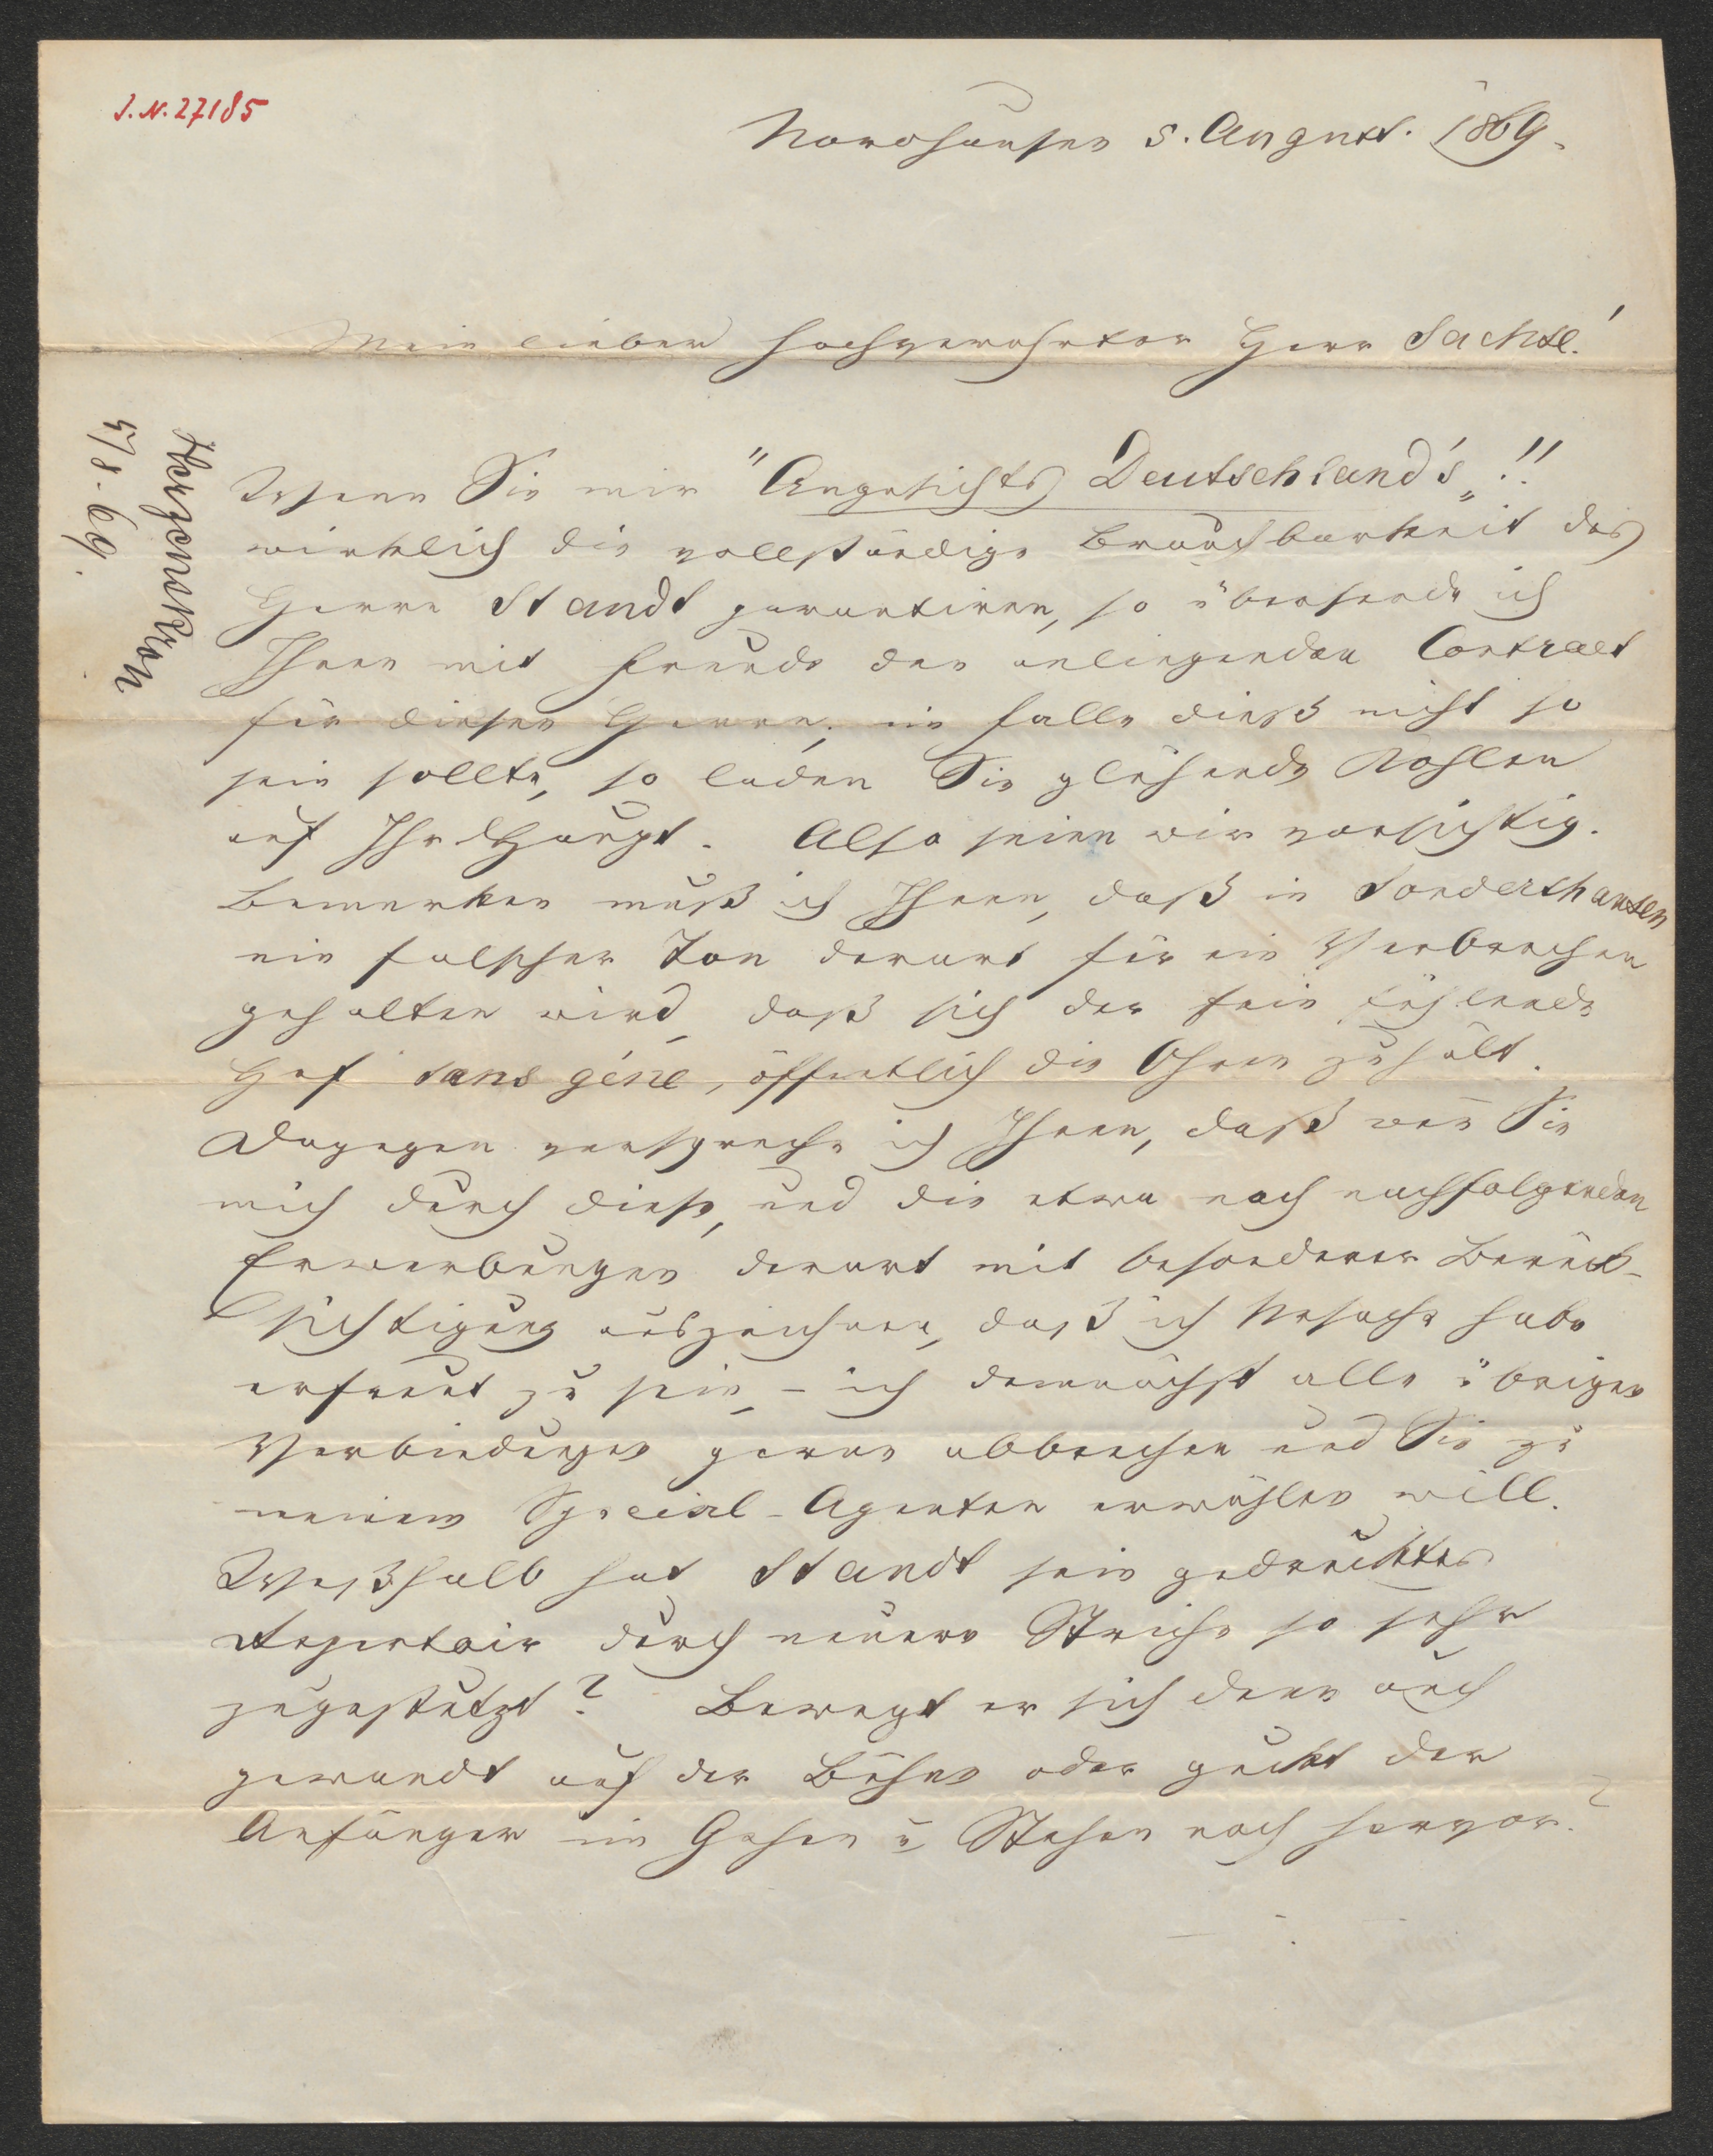 J.N. 27185
Nordhausen 5. August. 1869.
Mein lieber hochgeehrter Herr Sachse!
Herzenskron
5/8. 69.
Wenn Sie mir "Angesichts Deutschland's"!!
wirklich die vollständige Brauchbarkeit des
Herrn Standt garantiren, so übersende ich
Ihnen mit Freude den anliegenden Contract
für diesen Herrn; im Falle dieß nicht so
sein sollte, so laden Sie glühende Kohlen
auf Ihr Haupt. Also seien wir vorsichtig.
Bemerken muß ich Ihnen, daß in Sondershausen
ein falscher Ton derart für ein Verbrechen
gehalten wird, daß sich der fein fühlende
Hof sans géne, öffentlich die Ohren zuhält.
Dagegen verspreche ich Ihnen, daß wen̄ Sie
mich durch diese, und die etwa noch nachfolgenden
Erwerbungen derart mit besonderer Berück-
sichtigung auszeichnen, daß ich Ursache habe
erfreut zu sein, – ich demnächst alle übrigen
Verbindungen gerne abbrechen und Sie zu
meinem Special-Agenten erwählen will.
Weßhalb hat Standt sein gedrucktes
Repertoir durch neuere Striche so sehr
zugestutzt? Bewegt er sich denn auch
gewandt auf der Bühne oder guckt der
Anfänger im Gehen u Stehen noch hervor?